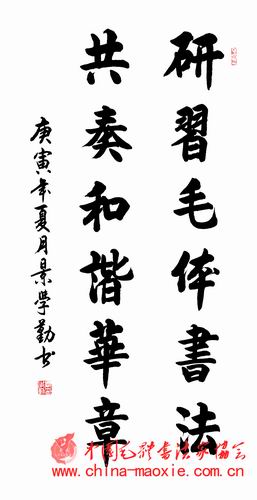 研習毛体書法
共奏和諧華章
庚寅年夏月景學勤书
中国毛体书法家协会
www.china-maoxie.com.cn